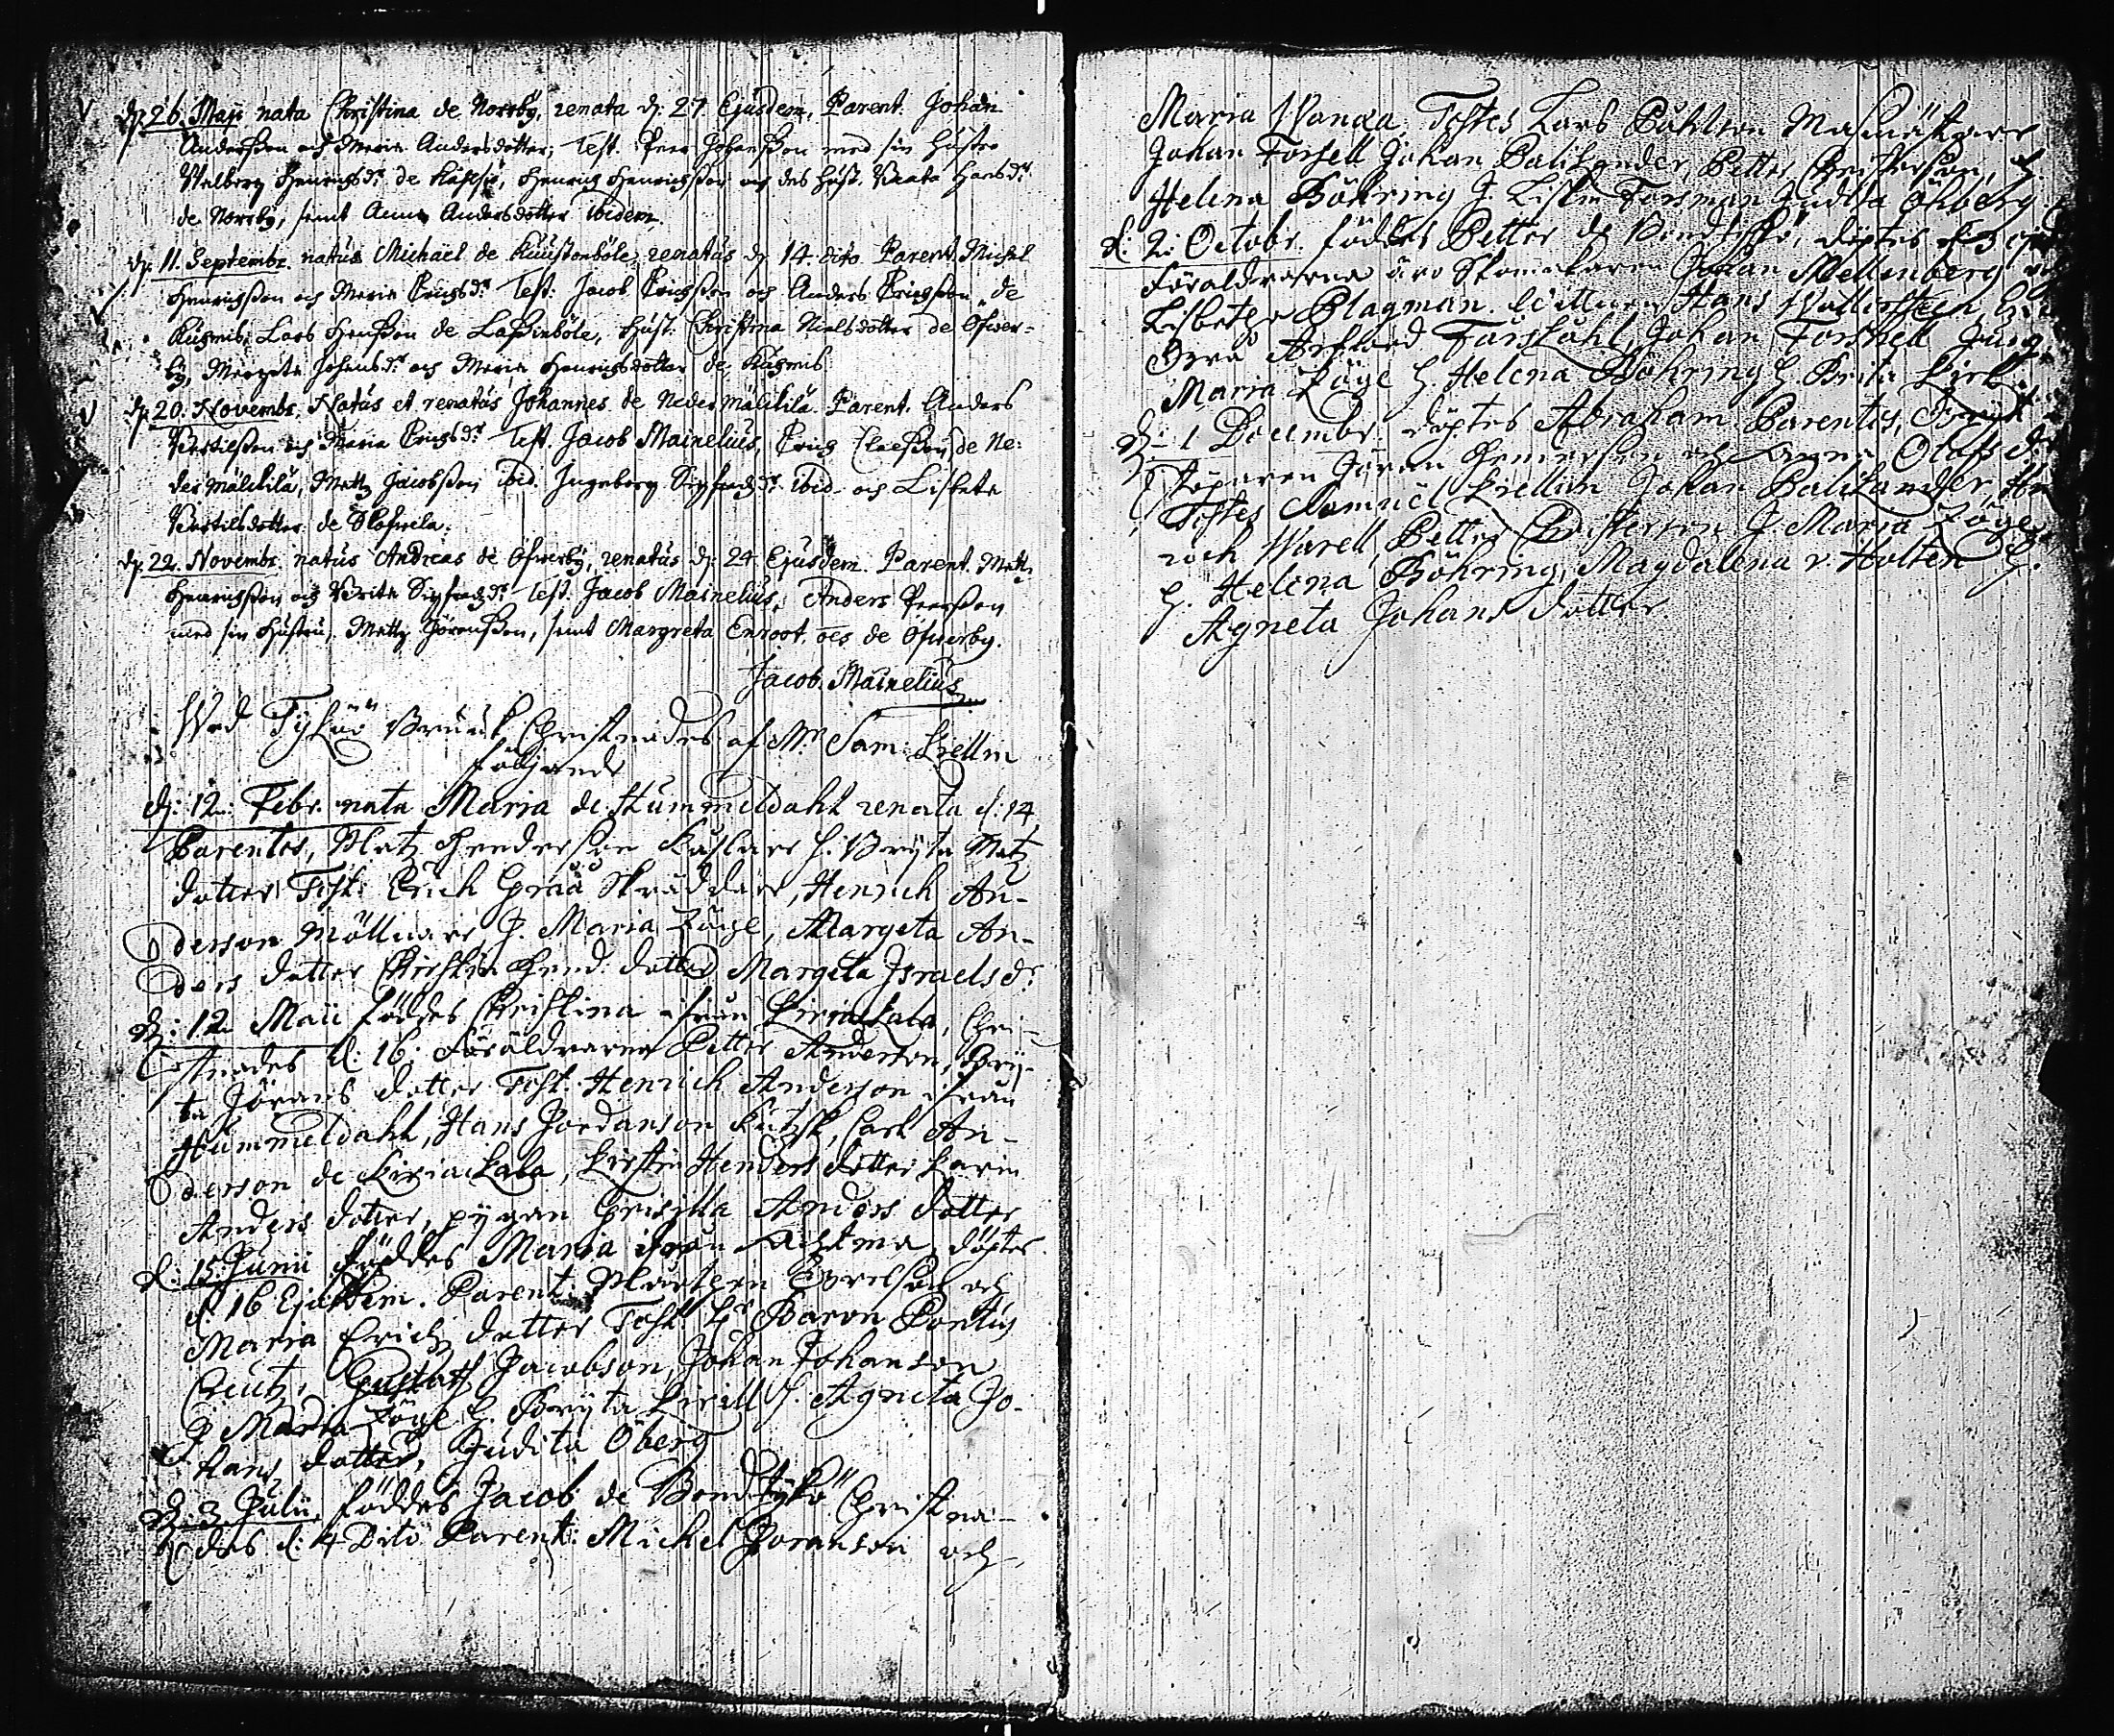 d. 26. Maji nata Christina de Norrby, renata d. 27 Ejusdem, Parent. Johan
Andersson och Maria Andersdotter; Test. Peer Johansson med sin hustro
Walborg Henrichsd:r de , Henrich Henrichsson och des hust. Beata Hansd:r
de Norrby, samt Anna Andersdotter ibidem.
d. 11. Septembr. natus Michaël de Kuustonböle, renatus d. 14. dito Parent. Michel
Henrichsson och Maria Erichsd:r Test: Jacob Erichsson och Anders Erichsson de
Kusmis, Lars Hansson de Lassinböle, Hust. Christina Nielsdotter de Ofver-
by, Margeta Johansd:r och Maria Henrichsdotter de Kusmis
d. 20. Novembr. Natus et renatus Johannes de Neder mälkilä. Parent. Anders
Bertilsson och Maria Erichsd:r Test. Jacob Mainelius, Erich Claesson de Ne-
der mälkilä, Matz Jacobsson ibid. Ingeborg Sigfredzd:r ibid. och Lisbeta
Bertilsdotter de .
d. 22. Novembr. natus Andreas de Öfverby, renatus d. 24 Ejusdem. Parent. Matz
Henrichsson och Brita Sigfredzd:r Test. Jacob Mainelius, Anders Peersson
med sin Hustru, Matz Jöransson, samt Margreta Enroot, oēs de Öfverby.
Jacob. Mainelius
Wed Tykiö Bruuk Christnades af Mr Sam: Kiellin
följande
d: 12: Febr. nata Maria de Hummeldahl renata d: 14
Parentes, Matz Henderson h. Bryta Matz
dotter Test: Erich Graa Skräddare, Henrich An-
derson Möllnare, J. Maria Zöge, Margeta An-
ders dotter Christin Hend: dotter Margeta Israels d:r
d: 12 Maii föddes Christina ifrån Kiriakala, Chri-
stnades d: 16: Föräldrarna Petter Anderson, Bry-
ta Jörans dotter Test. Henrich Anderson ifrån
Hummeldahl, Hans Jordanson Kutsk, Carl An-
derson de Kiriakala, Kirstin Henders dotter Karin
Anders dotter, pygan Grisilla Anders dotter
d: 15 Junii föddes Maria ifrån döptes
d. 16 Ejusdem. Parent: Mårten och
Maria Erichz dotter Test: Hr Baron Pontus
Creutz, Gustaff Jacobson, Johan Johanson
J. Maria Zöge h. Bryta h. Agneta Jo-
hans dotter, Judita Öberg
d: 3 Julii, föddes Jacob de Bondtykö Christna-
des d: 4 Dito Parent: Michel Joranson och
Maria Testes Lars Masmästare
Johan Forsell Johan Balikander, Petter Christerson, h.
Helena Böhring J. Lisken Forsman Judita Öhberg
d: 2: Octobr. föddes Petter de Bondtykö, döptes d 3
Föräldrarna äro Skomakaren Johan Mellenberg och
Lisbetha Plagman. Hans
Johan Forshell Jung.
Maria Zöge h. Helena Böhring h. Brita
d: 1 Decembr. döptes Abraham Parentes,
Jöran Henderson och Anna Olafs d:r
Testes Samuel Kiellin Johan Balikander,
Petter Christerson J. Maria Zöge
h. Helena Böhring, Magdalena v. Holten h.
Agneta Johans dotter